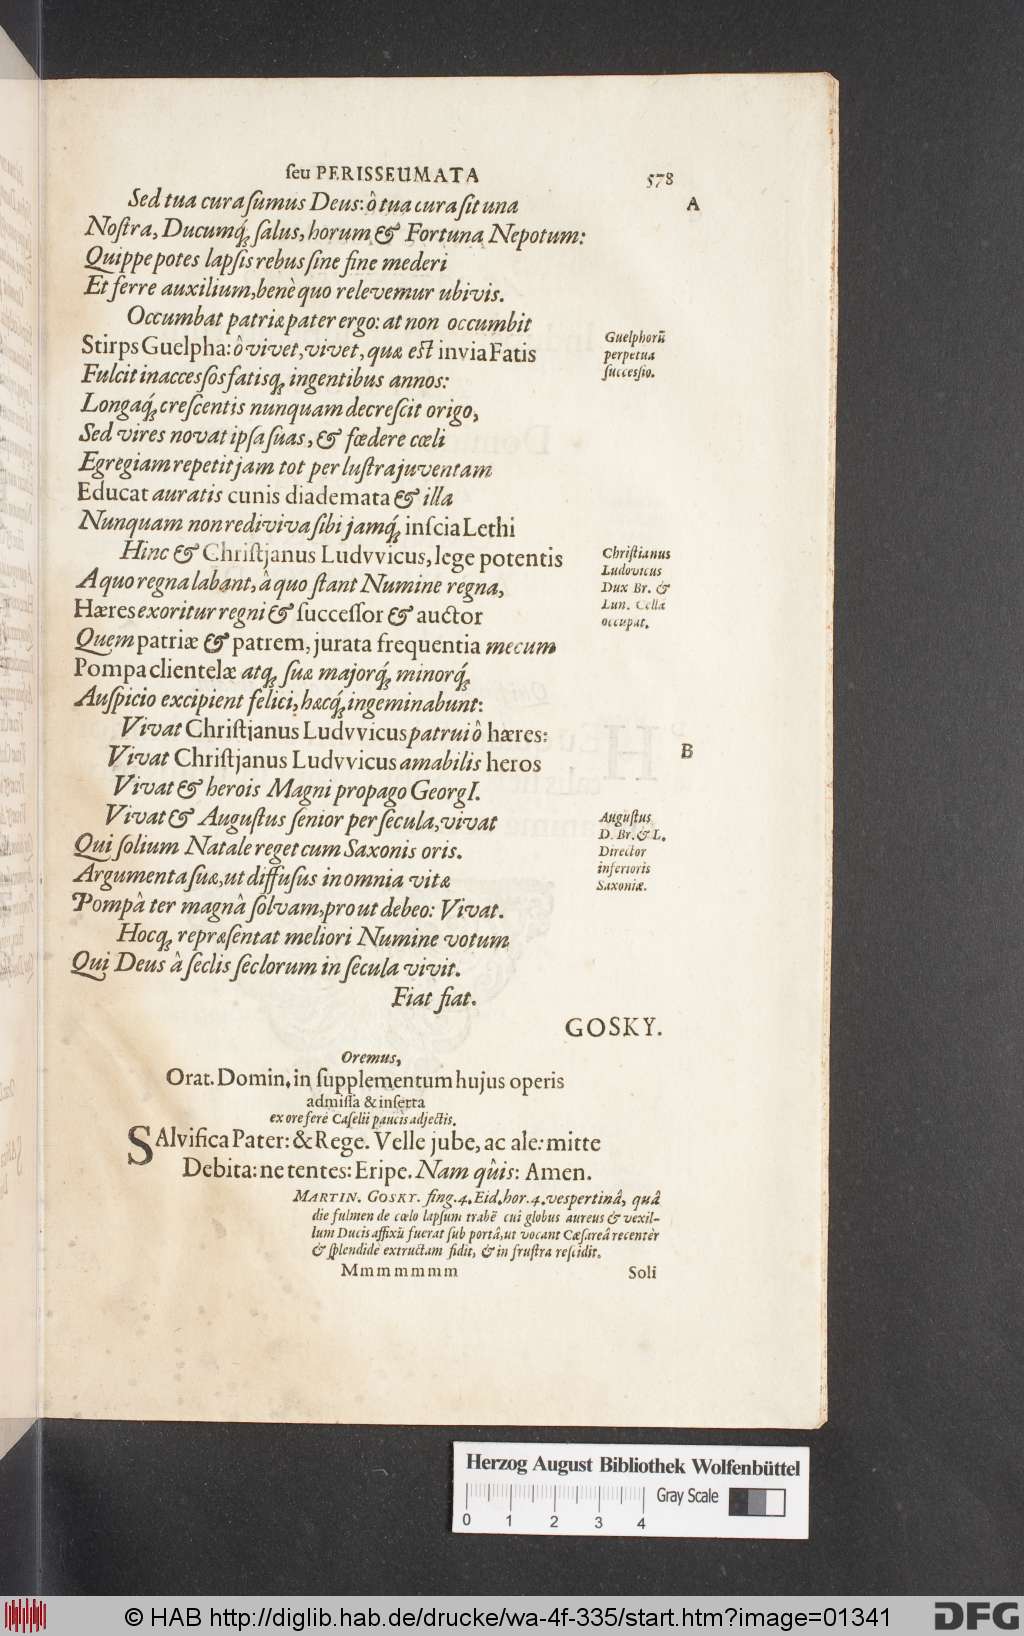 ſeu PERISSEUMATA 578
Sed tua cura ſumus Deus: ô tua cura ſit una
A
Noſtra, Ducumq́; ſalus, horum & Fortuna Nepotum:
Quippe potes lapſis rebus ſine fine mederi
Et ferre auxilium, benè quo relevemur ubivis.
Occumbat patriæ pater ergo: at non occumbit
Stirps Guelpha: ô vivet, vivet, quæ eſt invia Fatis
Guelphorū
perpetua
ſucceſsio.
Fulcit inacceſſos fatisq; ingentibus annos:
Longaq́; creſcentis nunquam decreſcit origo,
Sed vires novat ipſa ſuas, & fœdere cœli
Egregiam repetit jam tot per luſtra juventam
Educat auratis cunis diademata & illa
Nunquam non rediviva ſibi jamq́; inſcia Lethi
Hinc & Chriſtjanus Ludvvicus, lege potentis
Chriſtianus
Ludovicus
Dux Br. &
Lun. Cellæ
occupat.
A quo regna labant, â quo ſtant Numine regna,
Hæres exoritur regni & ſucceſſor & auctor
Quem patriæ & patrem, jurata frequentia mecum
Pompa clientelæ atq; ſuæ majorq́; minorq́;
Auſpicio excipient felici, hæcq́; ingeminabunt:
Vivat Chriſtjanus Ludvvicus patrui ô hæres:
Vivat Chriſtjanus Ludvvicus amabilis heros
B
Vivat & herois Magni propago GeorgI.
Vivat & Auguſtus ſenior per ſecula, vivat
Auguſtus
D. Br. & L.
Director
inferioris
Saxoniæ.
Qui ſolium Natale reget cum Saxonis oris.
Argumenta ſuæ, ut diffuſus in omnia vitæ
Pompâ ter magnâ ſolvam, pro ut debeo: Vivat.
Hocq; repræſentat meliori Numine votum
Qui Deus â ſeclis ſeclorum in ſecula vivit.
Fiat fiat.
GOSKY.
Oremus,
Orat. Domin. in ſupplementum hujus operis
admiſſa & inſerta
ex ore ferè Caſelii paucis adjectis.
SAlvifica Pater: & Rege. Velle jube, ac ale: mitte
Debita: ne tentes: Eripe. Nam qûis: Amen.
MARTIN. GOSKY. ſing. 4. Eid. hor. 4. veſpertinâ, quâ
die fulmen de cœlo lapſum trabē cui globus aureus & vexil-
lum Ducis affixū fuerat ſub portâ, ut vocant Cæſareâ recentèr
& ſplendidè extructam fidit, & in fruſtra reſcidit.
Mmmmmmm Soli
Herzog August Bibliothek Wolfenbüttel
Gray Scale
0 1 2 3 4
© HAB http://diglib.hab.de/drucke/wa-4f-335/start.htm?image=01341
DFG